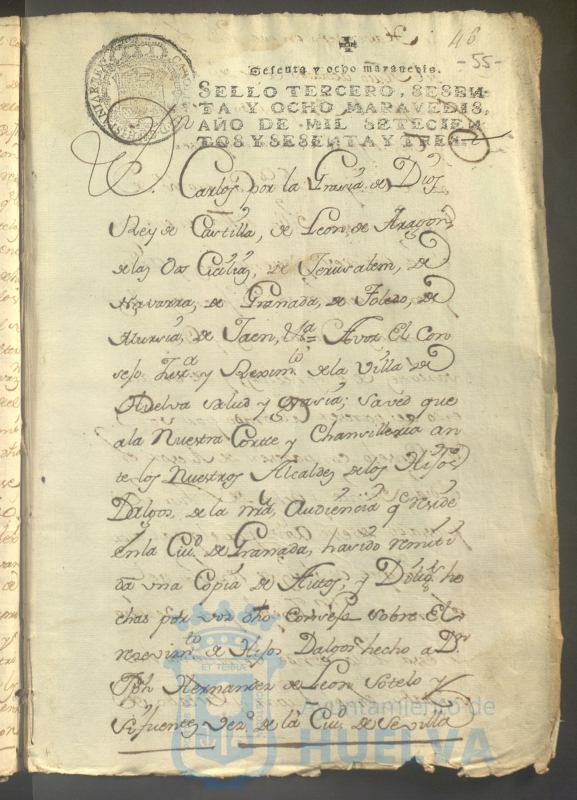 46
-55-
Sesenta y ocho maravedis.
SELLO TERCERO, SESEN-
TA Y OCHO MARAVEDIS,
AÑO DE MIL SETECIEN-
TOS Y SESENTA Y TRES.
D. Carlos por la Gracia de Dios
Rey de Castilla, de Leon de Aragon
de las Dos Cicilias, de Jerusalem, de
Navarra, de Granada, de Toledo, de
Murcia, de Jaen, &a = Avos El Con
sejo Justa. y Reximto. de la Villa de
Huelva salud y gracia; saved que
ala Nuestra Corte y Chansilleria an
te los Nuestros Alcaldes de los Hijos
Dalgos, de la nra, Audiencia q reside
en la Ciud. de Granada, ha sido remiti
da una Copia de Autos, y Diligs. he
chas por vos dho Consejo sobre El
rezevimto. de Hijos Dalgos hecho a Dn
Jph Hernandez de Leon Sotelo y
Sifuentes vezo. de la Ciud. de Sevilla
ET TERRA
Ayuntamiento de
HUELVA